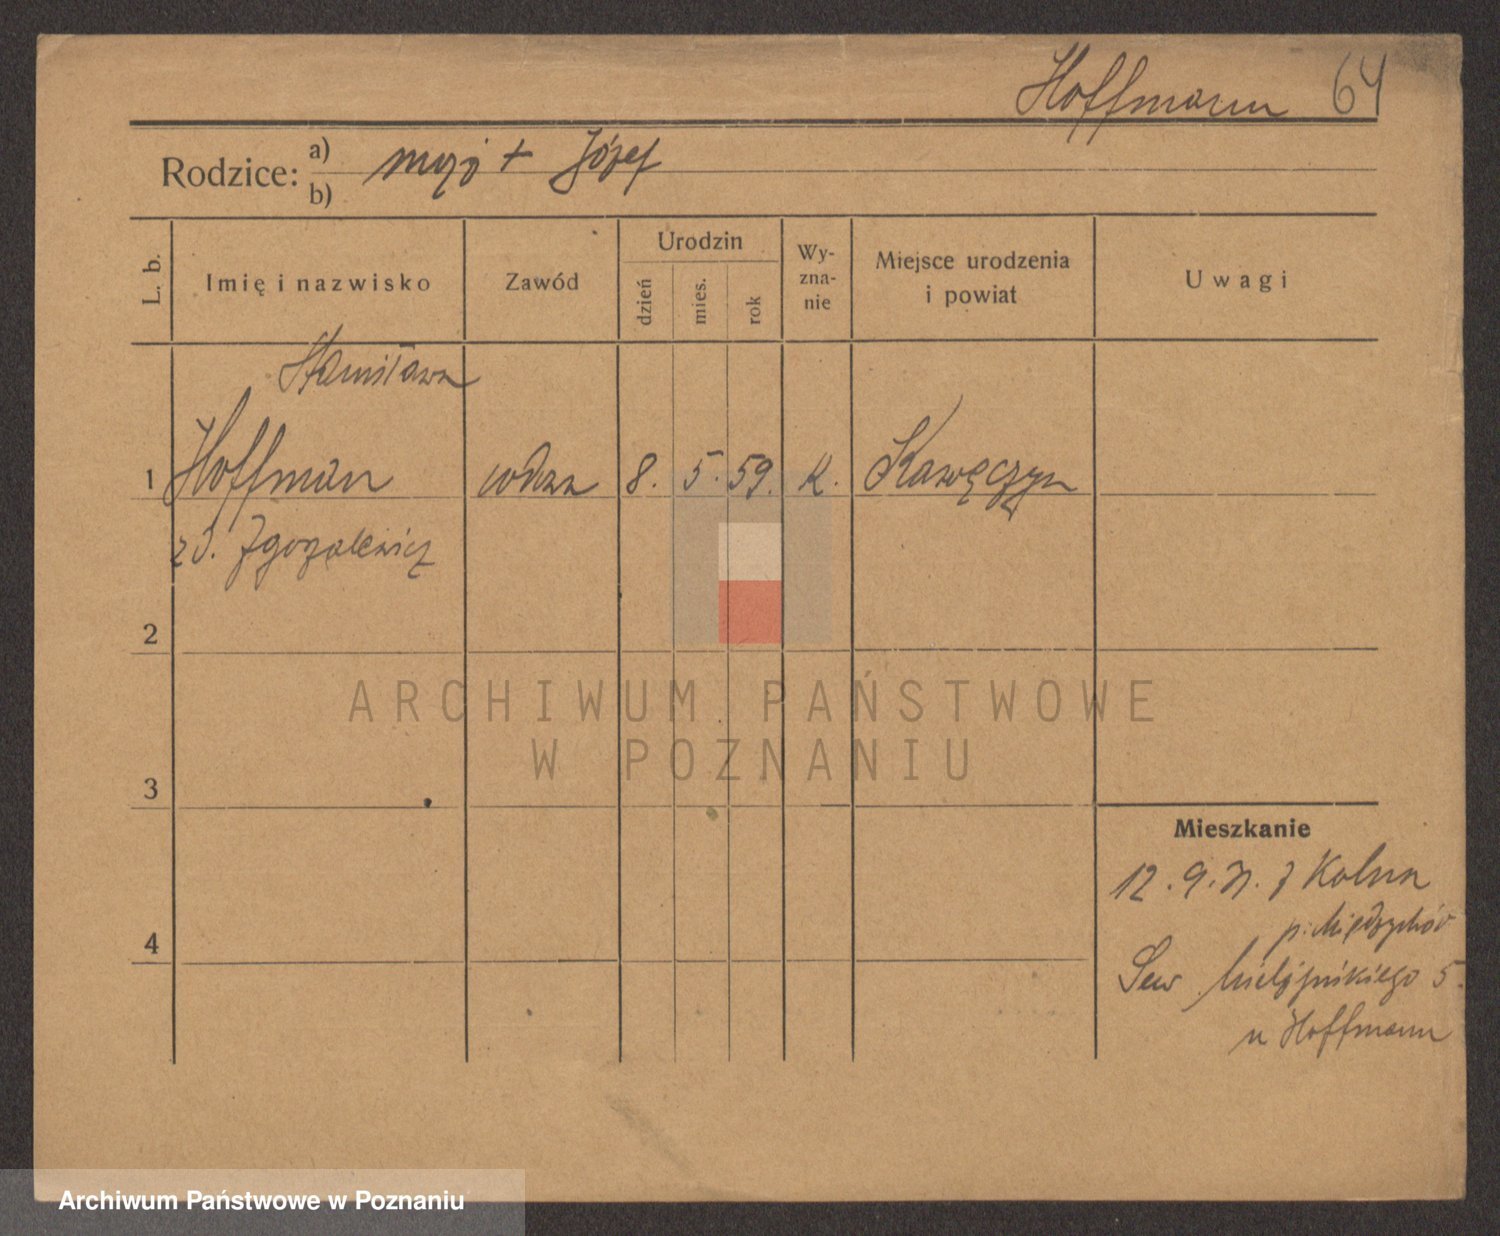 Hoffmann 64
Rodzice: a) mąż + Józef
b)
L. b.
Imię i nazwisko
Zawód
Urodzin
dzień
mies.
rok
Wy-
zna-
nie
Miejsce urodzenia
i powiat
Uwagi
Stanisława
1 Hoffman wdowa 8. 5. 59. k. Kawęczyn
zd. Zgozalewicz
2
3
4
Mieszkanie
12. 9. 31. z Kolna
p. Międzychód
Sew. Mielżyńskiego 5.
u Hoffmann
ARCHIWUM PAŃSTWOWE
W POZNANIU
Archiwum Państwowe w Poznaniu